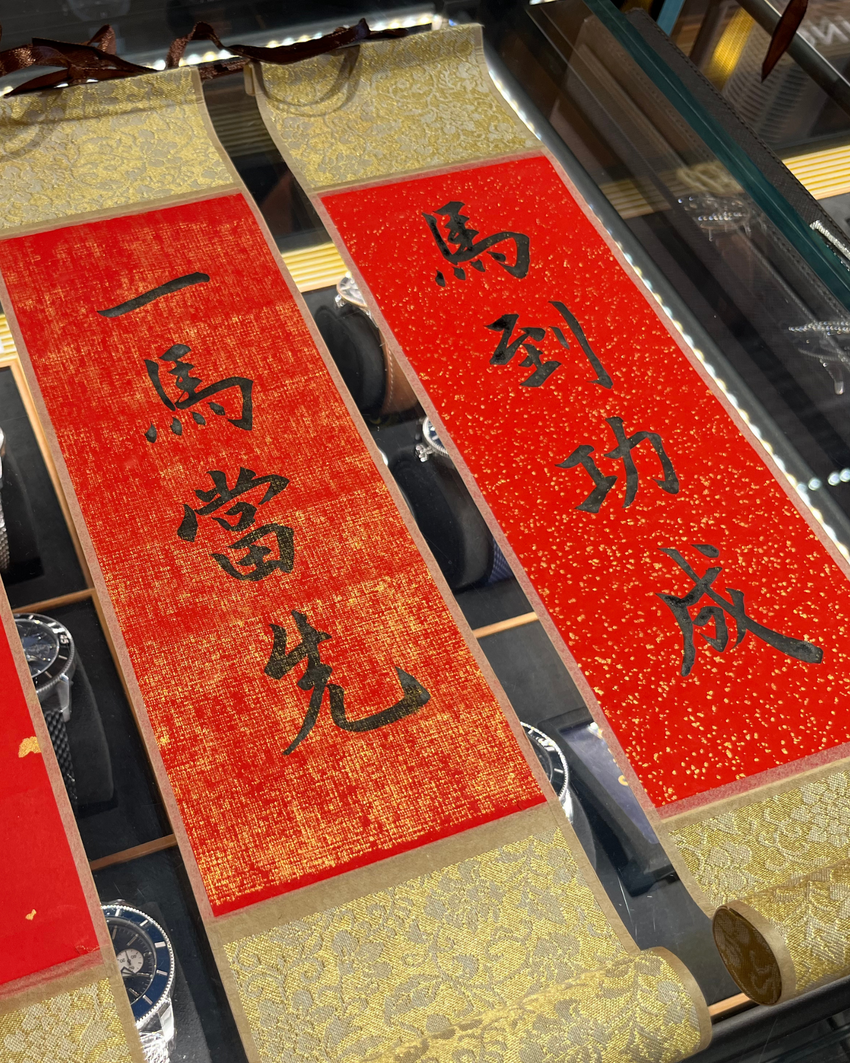 馬到功成
一馬當先